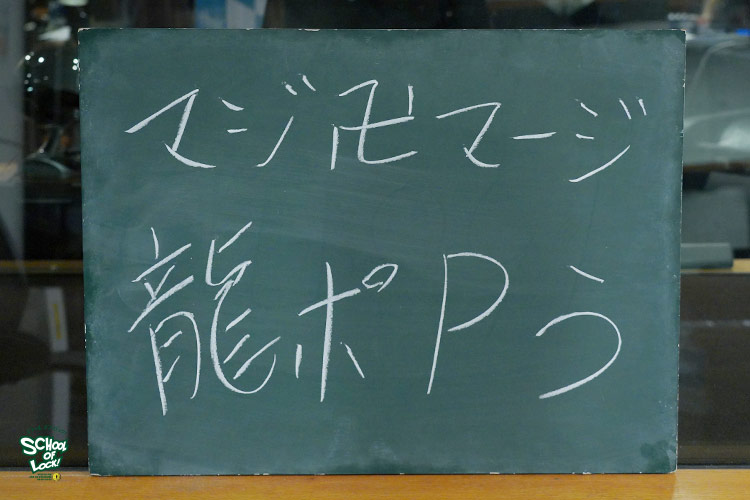 マジ卍マージ
龍ポPう
SCHOOL
OF
LOCK!